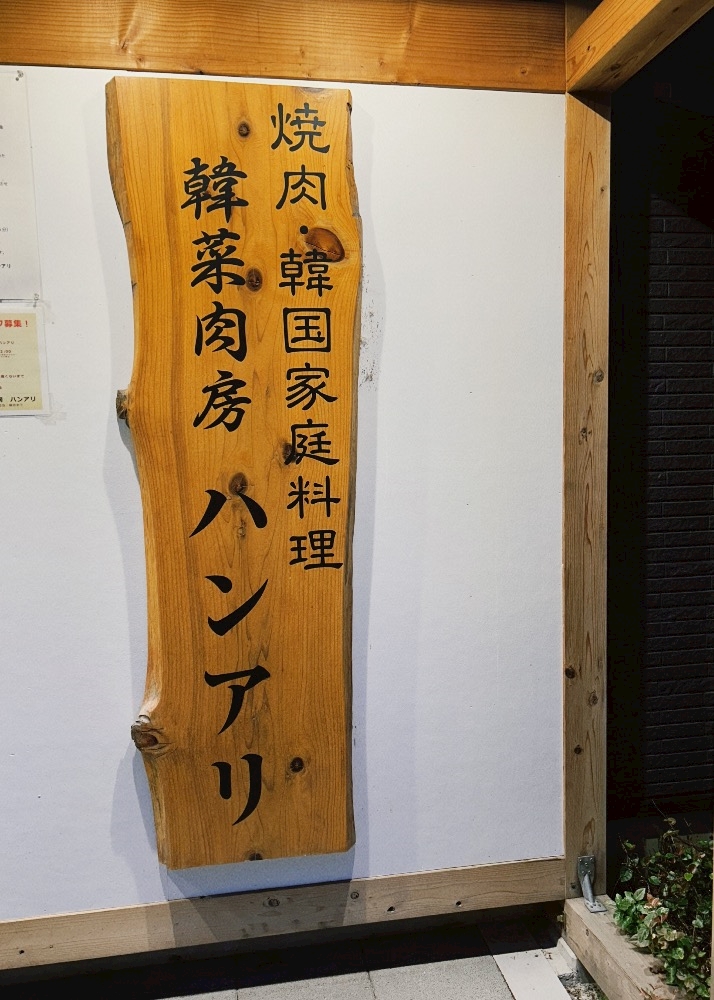 焼肉・韓国家庭料理
韓菜肉房 ハンアリ
募集！
ハンアリ